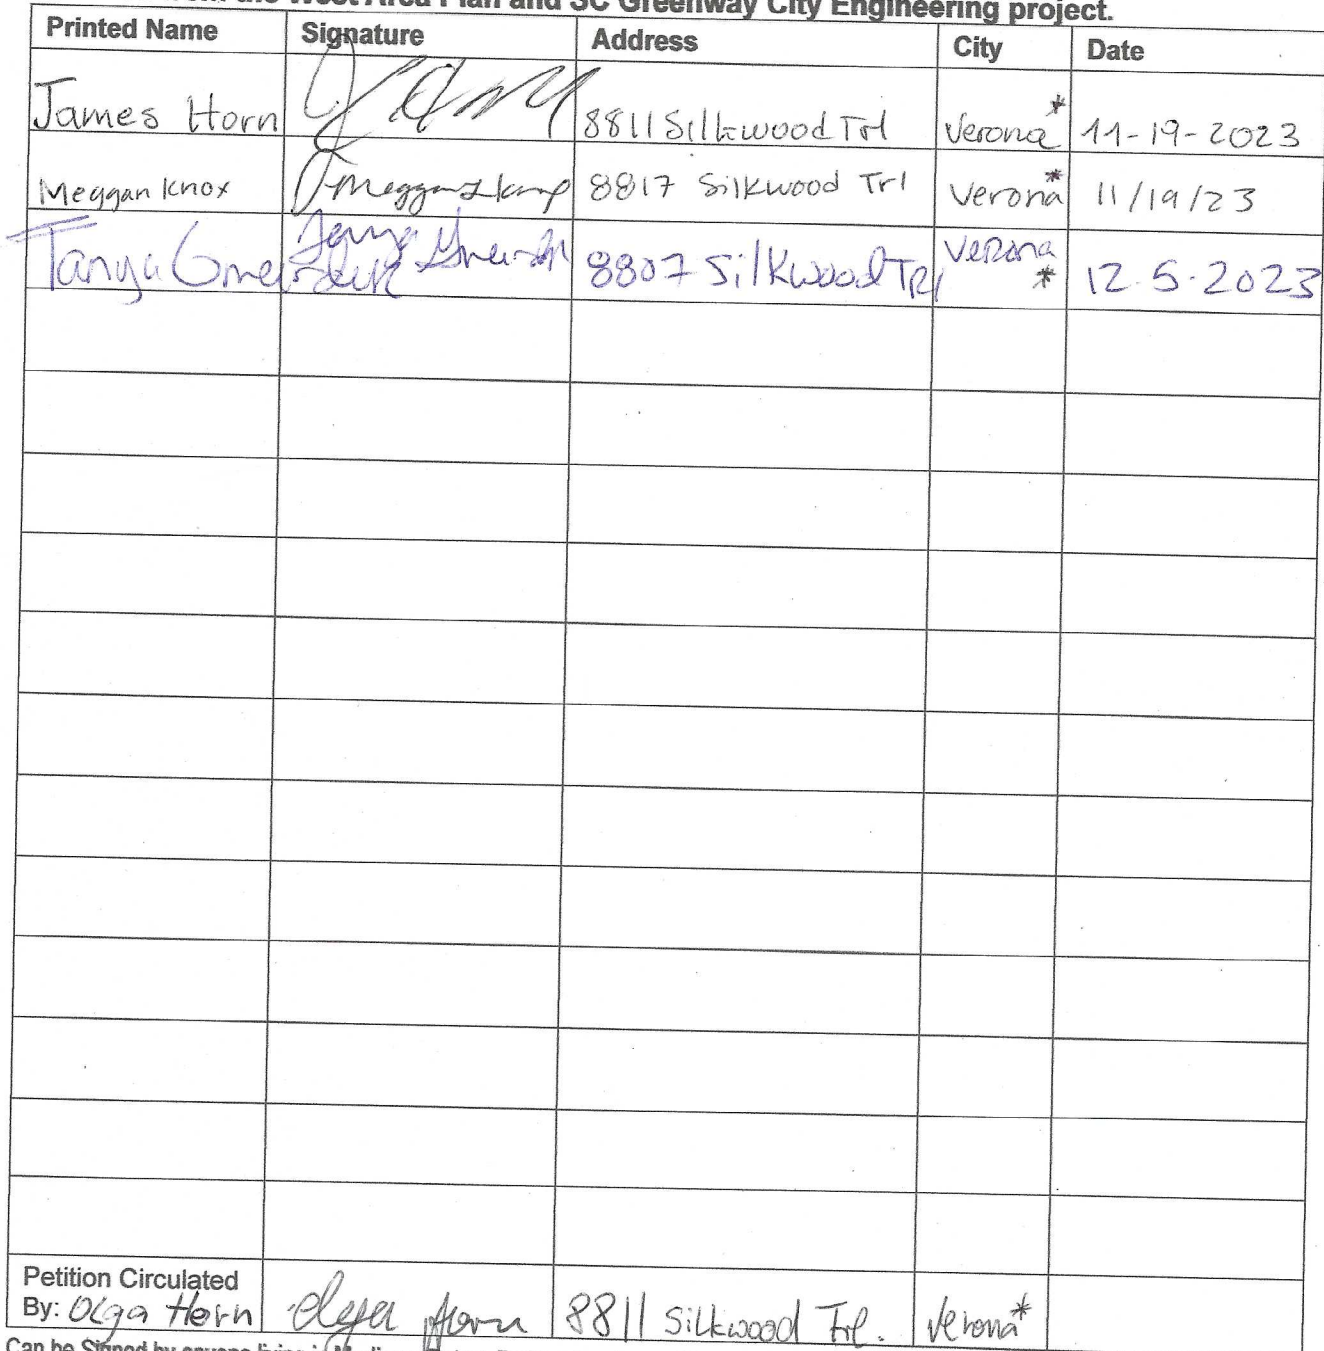 the West Area Plan and SC Greenway City Engineering project.
Printed Name Signature Address City Date
James Horn 8811 Silkwood Trl Verona* 11-19-2023
Meggan Knox 8817 Silkwood Trl Verona* 11/19/23
Tanya 8807 Silkwood TRl Verona * 12.5.2023
Petition Circulated
By: Olga Horn Olga Horn 8811 Silkwood Trl. Verona*
Can be Signed by anyone living